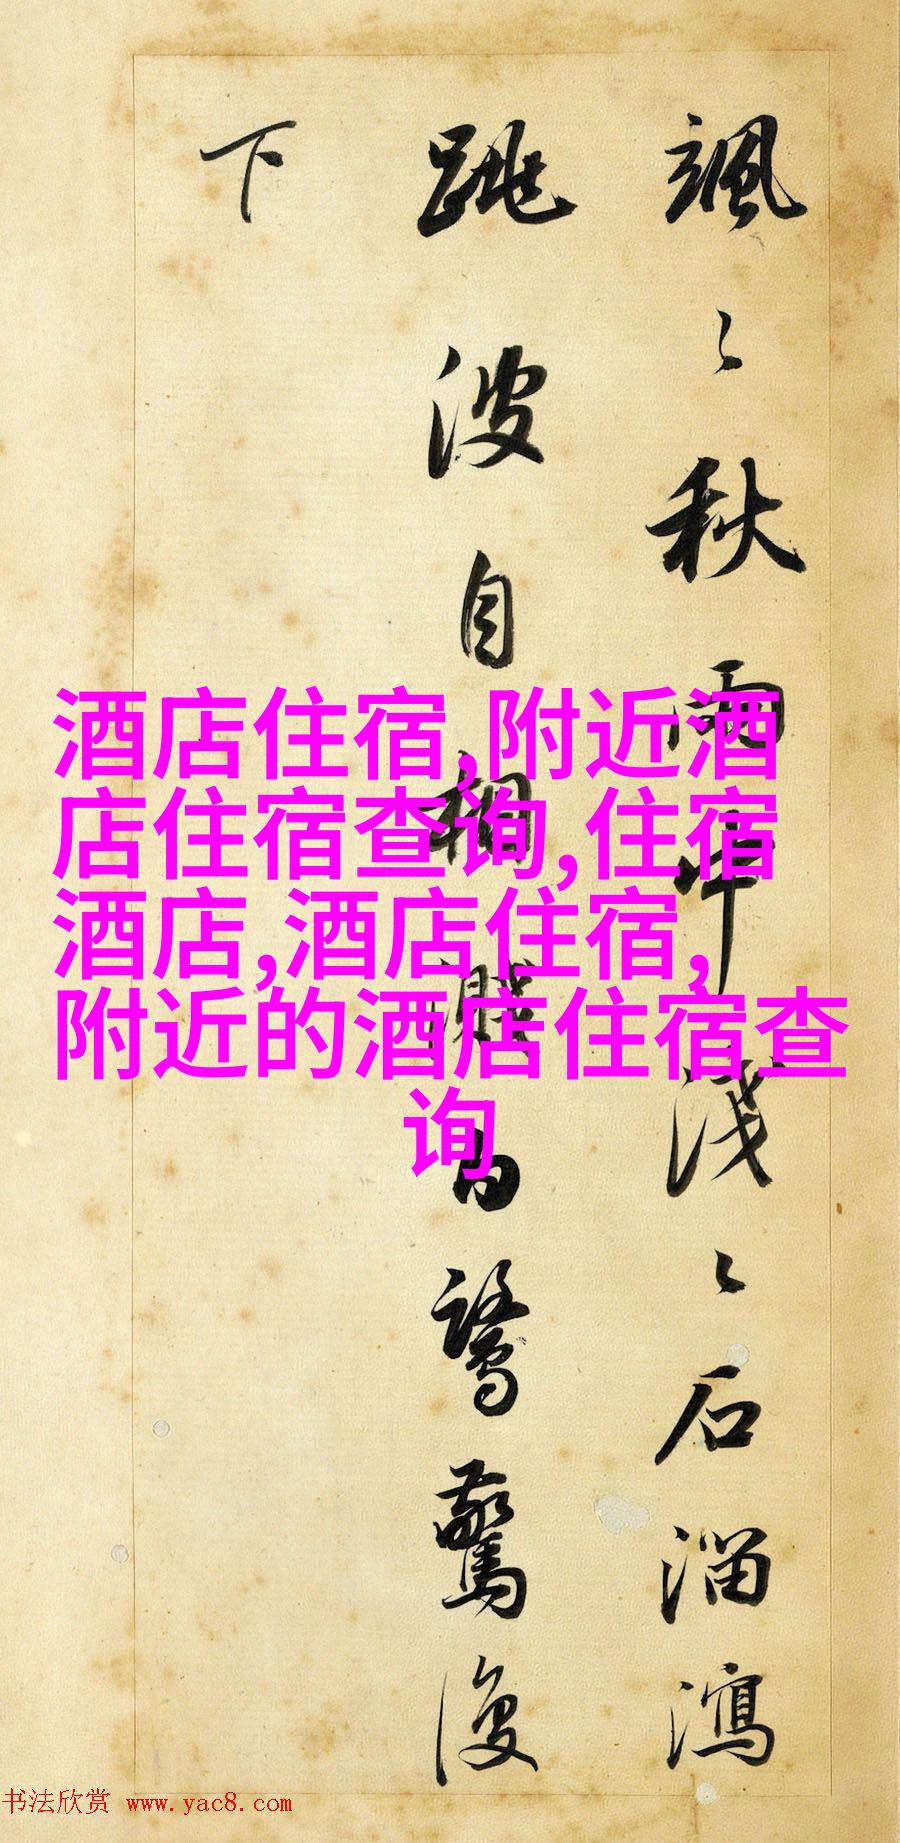 飒〻秋雨中浅〻石溜泻
跳波自相溅白鹭惊复
下
酒店住宿,附近酒
店住宿查询,住宿
酒店,酒店住宿,
附近的酒店住宿查
询
书法欣赏 www.yac8.com